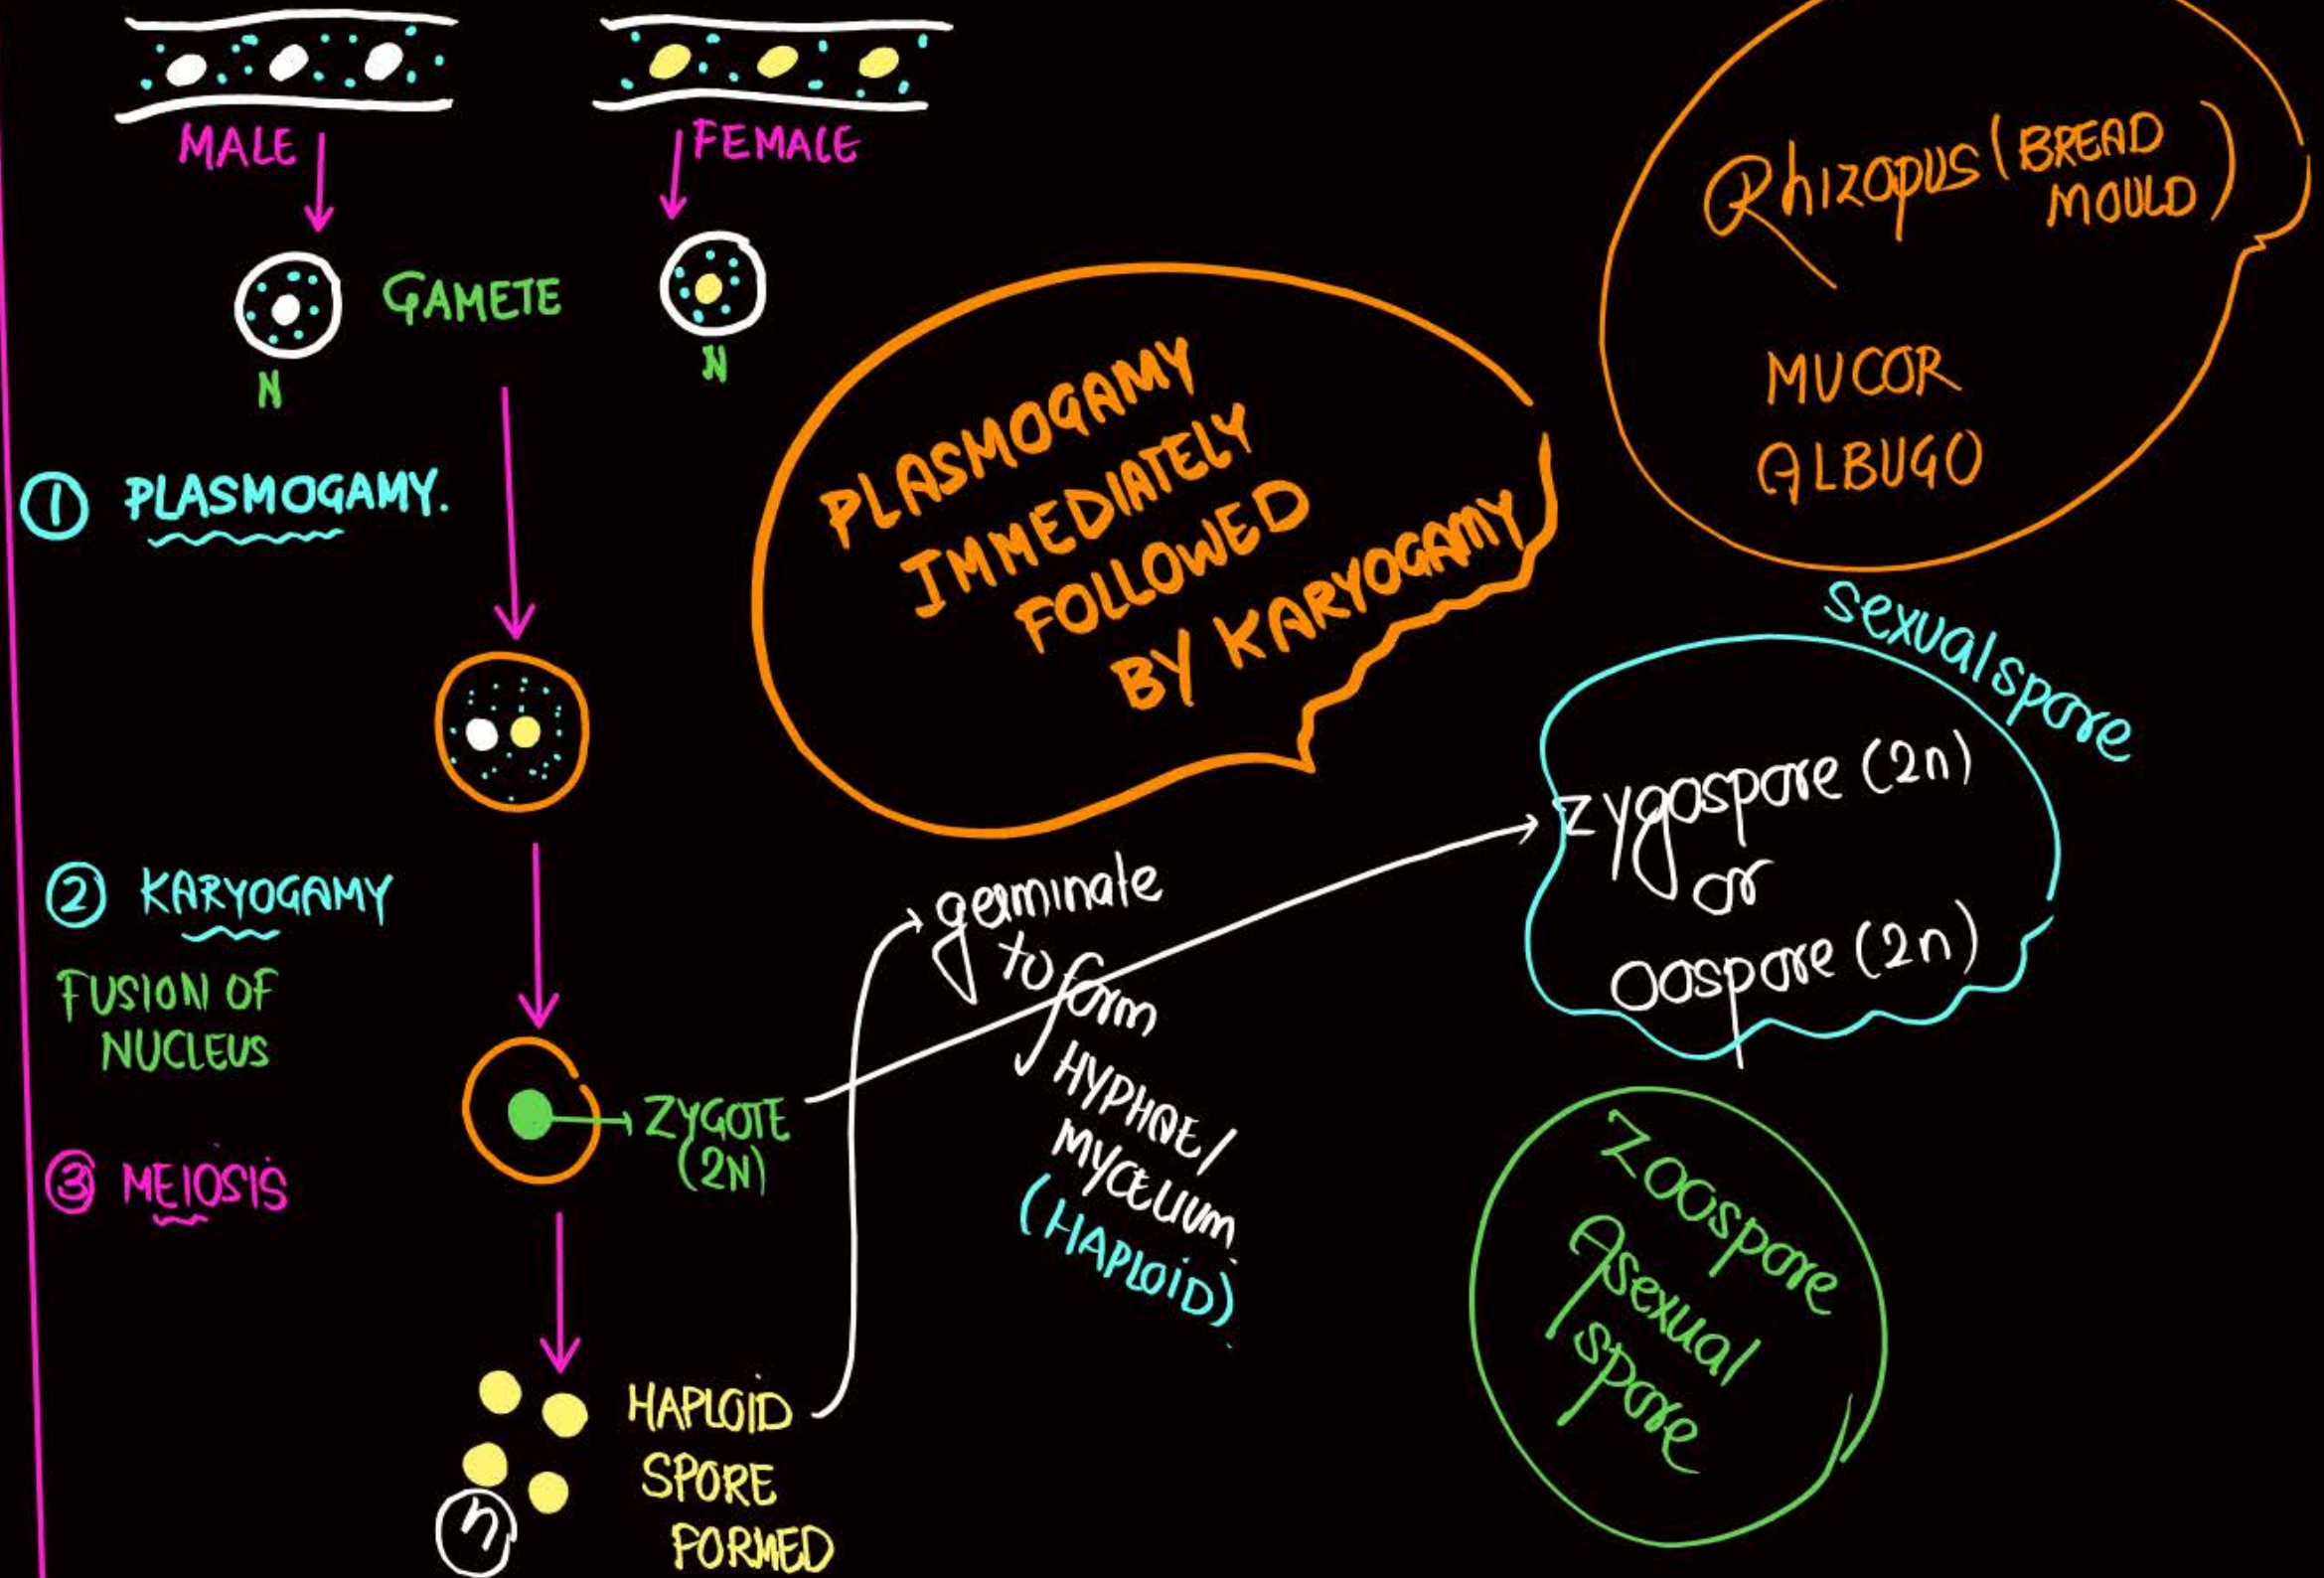 MALE
FEMALE
GAMETE
N
N
① PLASMOGAMY.
② KARYOGAMY
FUSION OF
NUCLEUS
ZYGOTE
(2N)
③ MEIOSIS
HAPLOID
SPORE
FORMED
n
PLASMOGAMY
IMMEDIATELY
FOLLOWED
BY KARYOGAMY
germinate
to form
HYPHAE/
MYCELIUM
(HAPLOID)
Rhizopus (BREAD
MOULD)
MUCOR
ALBUGO
sexual spore
Zygospore (2n)
or
Oospore (2n)
Zoospore
Asexual
spore